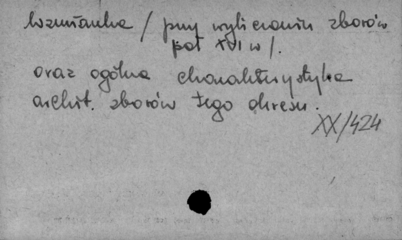 wzmianka / przy wyliczaniu zborów
poł XVI w /.
oraz ogólna charakterystyka
archit. zborów tego okresu.
XX/424